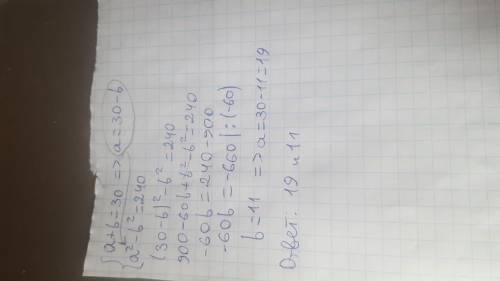 {a+b=30 => a=30-b
{a²-b²=240
(30-b)²-b²=240
900-60b+b²-b²=240
-60b=240-900
-60b=-660|:(-60)
b=11 => a=30-11=19
Ответ: 19 и 11